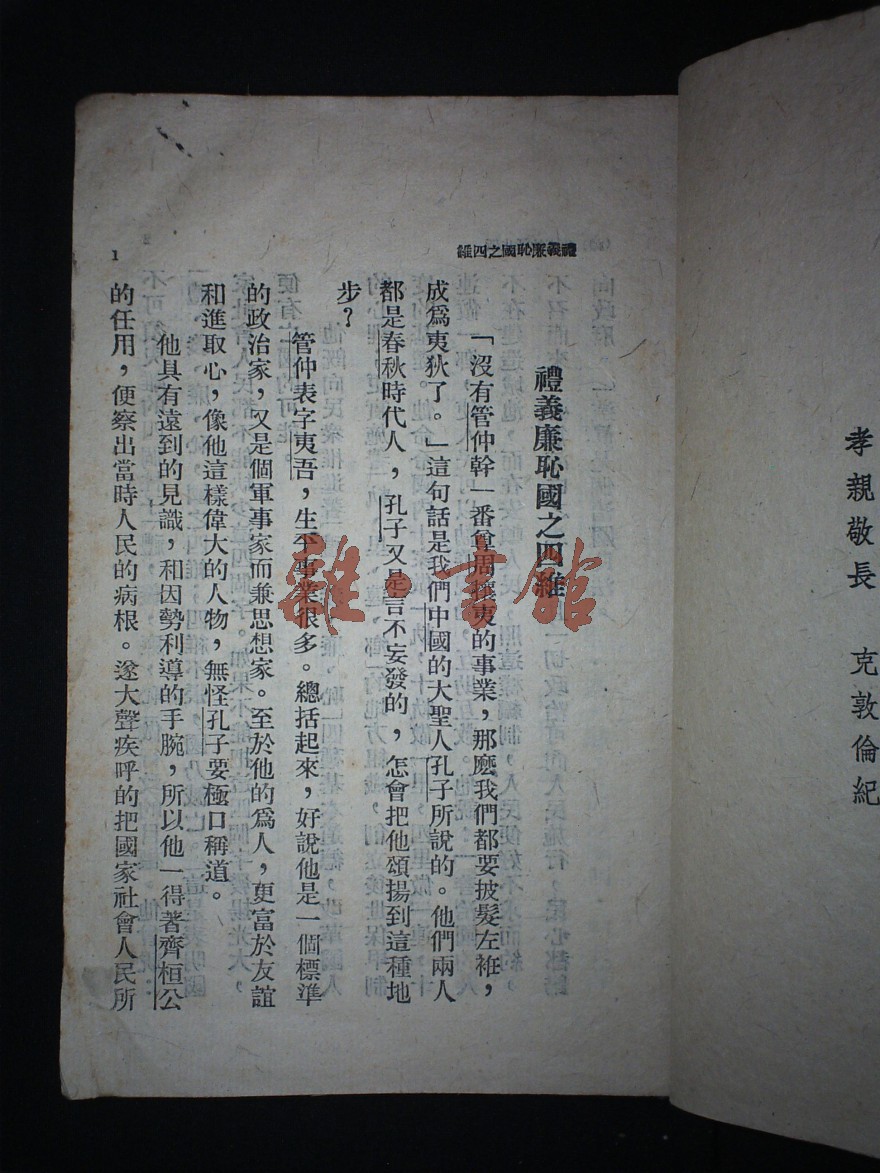 孝親敬長　克敦倫紀
禮義廉恥國之四維
禮義廉恥國之四維
「沒有管仲幹一番尊周攘夷的事業，那麽我們都要披髮左袵，
成爲夷狄了。」這句話是我們中國的大聖人孔子所說的。他們兩人
都是春秋時代人，孔子又是言不妄發的，怎會把他頌揚到這種地
步？
管仲表字夷吾，生平事業很多。總括起來，好說他是一個標準
的政治家，又是個軍事家而兼思想家。至於他的爲人，更富於友誼
和進取心，像他這樣偉大的人物，無怪孔子要極口稱道。
他具有遠到的見識，和因勢利導的手腕，所以他一得著齊桓公
的任用，便察出當時人民的病根。遂大聲疾呼的把國家社會人民所
1
雜·書館